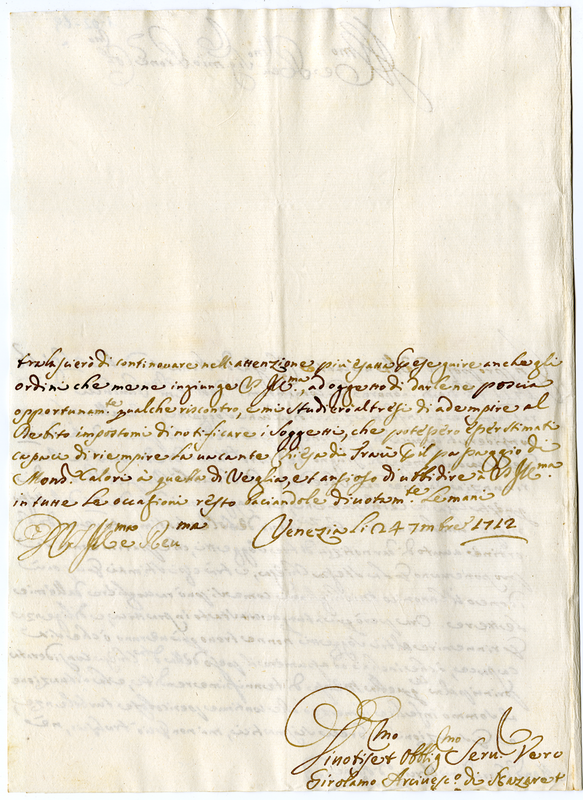 tralascierò di continovare nell'attenzione più esatta p eseguire anche gli
ordini che me ne ingiunge V S Ill.ma, ad oggetto di darlene poscia
opportunam.te qualche riscontro, e mi studierò altresì di adempire al
Debito impostomi di notificare i Soggetti, che potessero esser stimati
capaci di riempire la vacante Chiesa di Traù p il passaggio di
Mons.r à quella di Veglia, et ansioso di ubbidire à V S Ill.ma
in tutte le occasioni resto baciandole divotam.te le mani
Di V S Ill.ma e Rev.ma Venezia li 24 7mbre 1712
Divotis.mo et Obblig.mo Serv. Vero
Girolamo Arcivesc.o di Nazaret